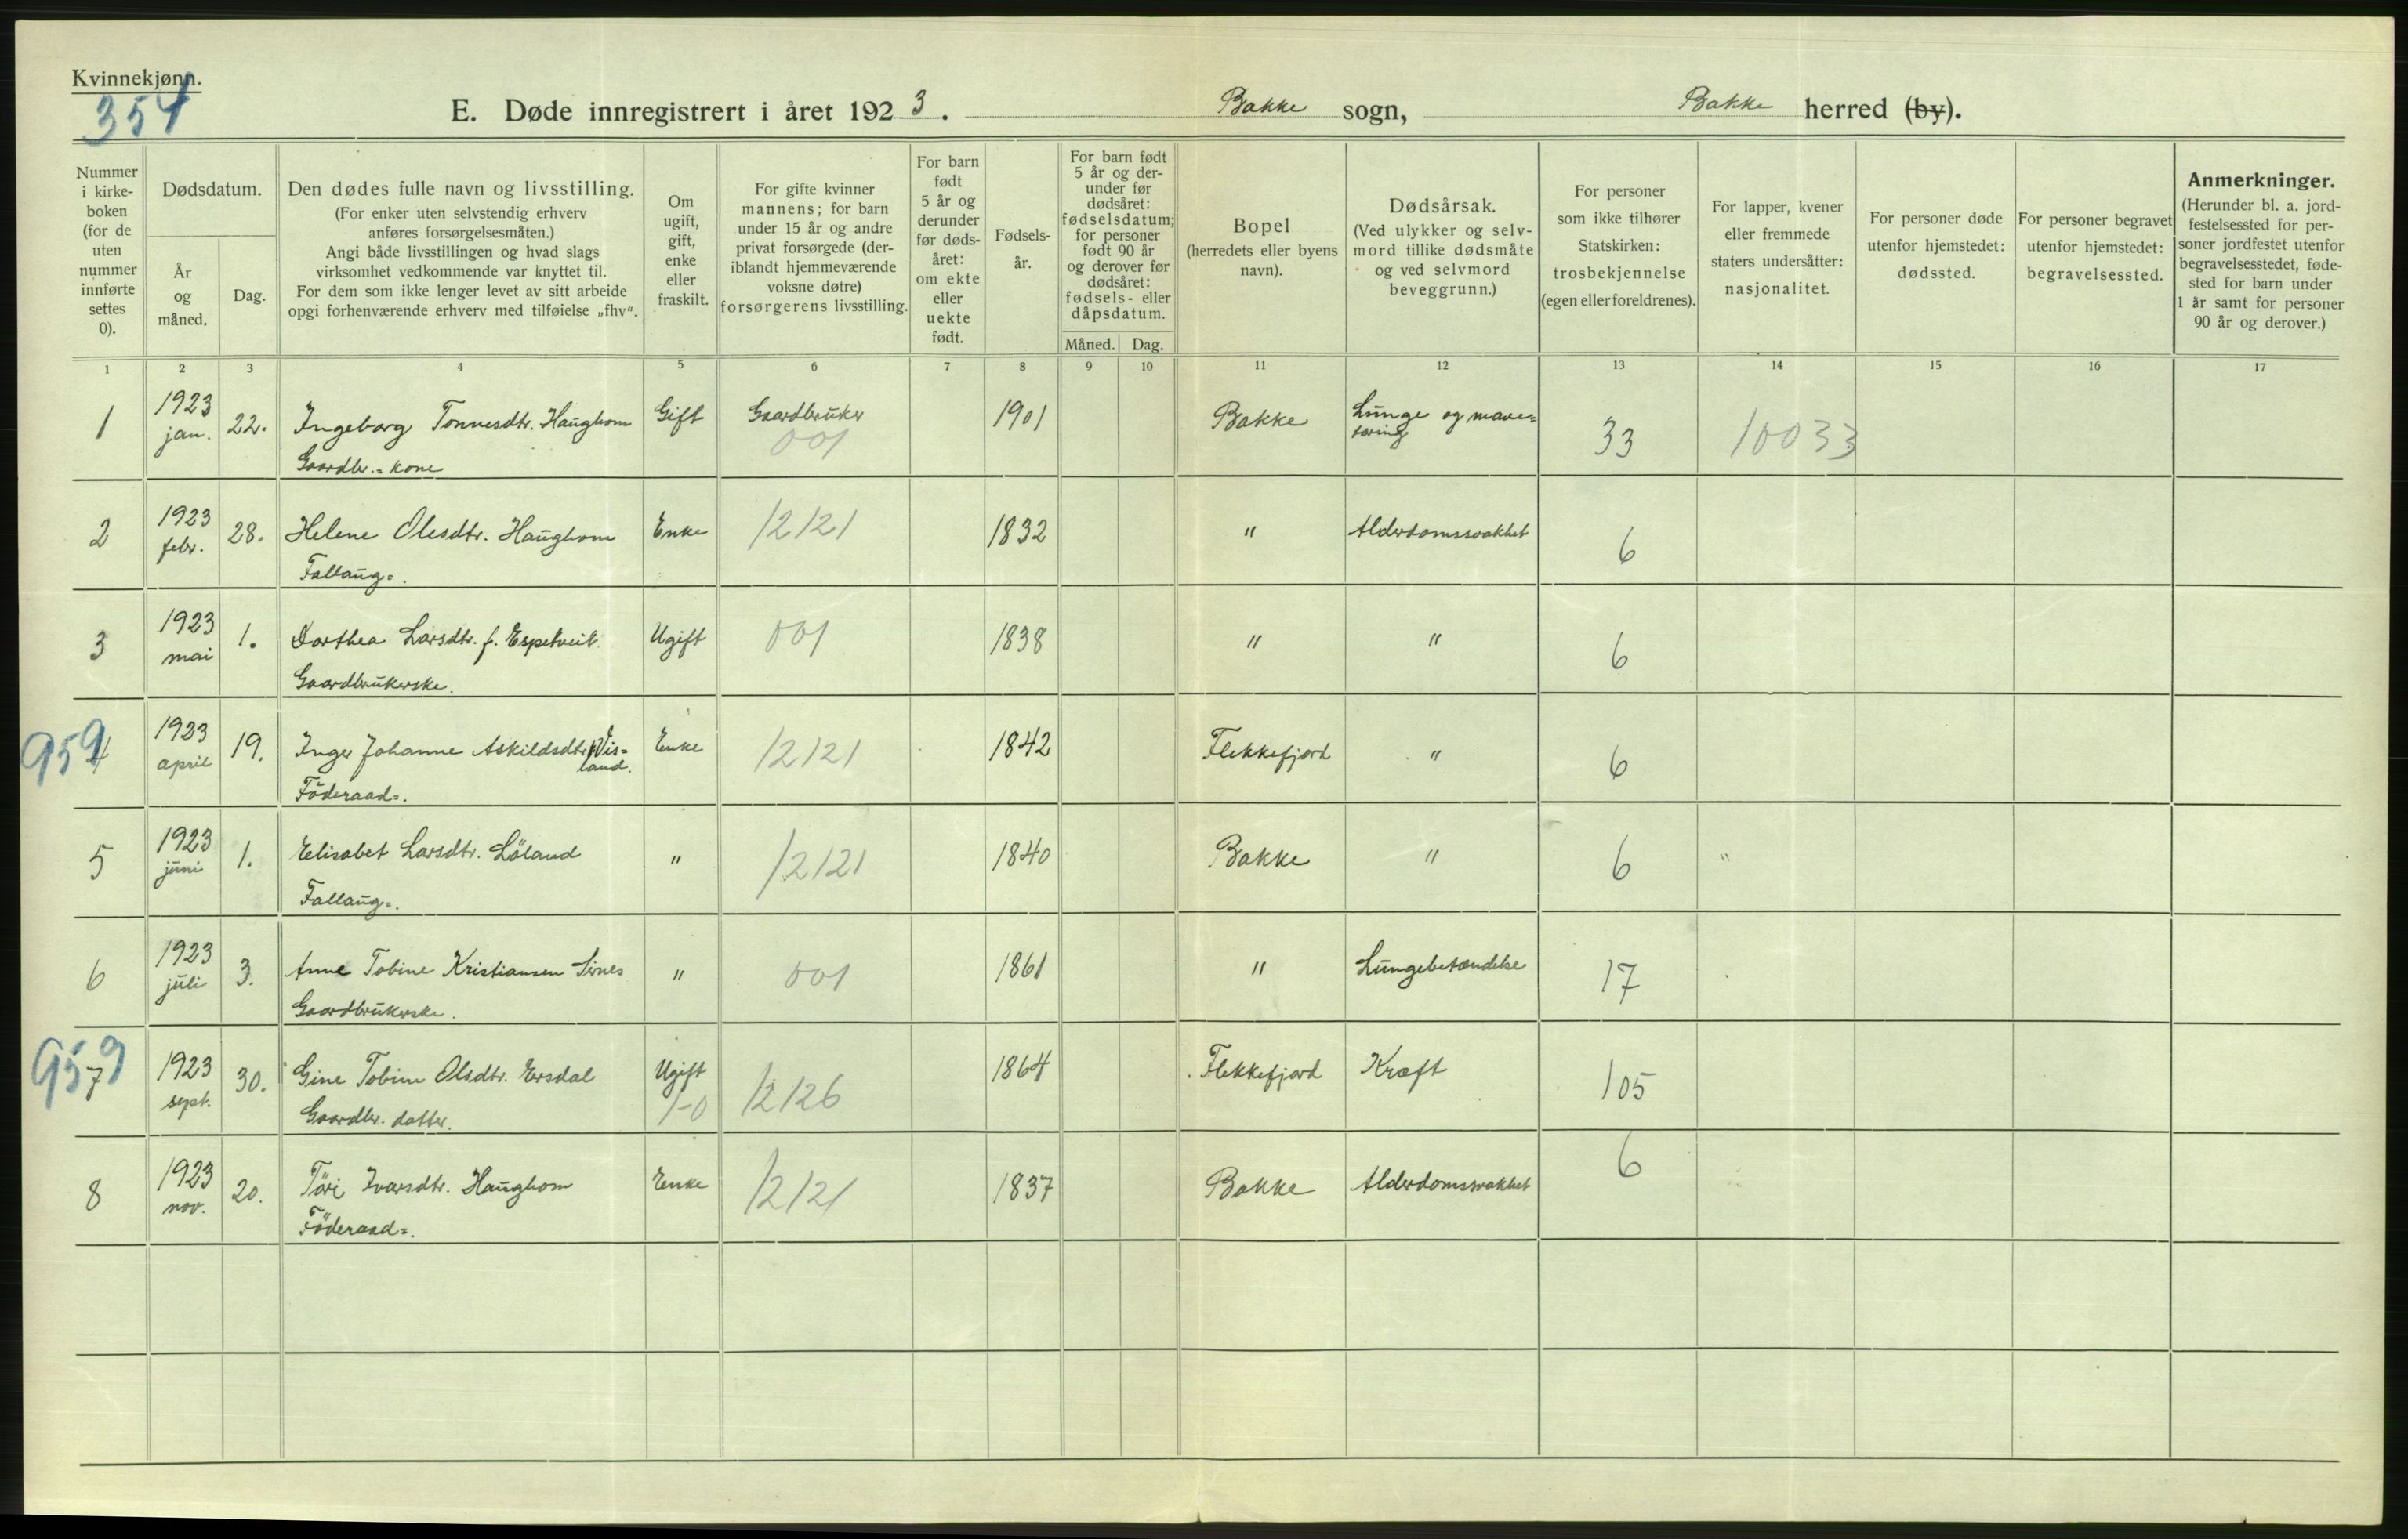 Kvinnekjønn.
354
E. Døde innregistrert i året 1923. Bakke sogn, Bakke herred (by).
Nummer i kirke-boken (for de uten nummer innførte settes 0).
Dødsdatum.
År og måned.
Dag.
Den dødes fulle navn og livsstilling.
(For enker uten selvstendig erhverv
anføres forsørgelsesmåten.)
Angi både livsstillingen og hvad slags
virksomhet vedkommende var knyttet til.
For dem som ikke lenger levet av sitt arbeide
opgi forhenværende erhverv med tilføielse „fhv“.
Om ugift, gift, enke eller fraskilt.
For gifte kvinner
mannens; for barn
under 15 år og andre
privat forsørgede (der-
iblandt hjemmeværende
voksne døtre)
forsørgerens livsstilling.
For barn født 5 år og derunder før døds-året: om ekte eller uekte født.
Fødsels-år.
For barn født
5 år og der-
under før
dødsåret:
fødselsdatum;
for personer
født 90 år
og derover før
dødsåret:
fødsels- eller
dåpsdatum.
Måned. Dag.
Bopel
(herredets eller byens
navn).
Dødsårsak.
(Ved ulykker og selv-
mord tillike dødsmåte
og ved selvmord
beveggrunn.)
For personer
som ikke tilhører
Statskirken:
trosbekjennelse
(egen eller foreldrenes).
For lapper, kvener
eller fremmede
staters undersåtter:
nasjonalitet.
For personer døde
utenfor hjemstedet:
dødssted.
For personer begravet
utenfor hjemstedet:
begravelsessted.
Anmerkninger.
(Herunder bl. a. jord-
festelsessted for per-
soner jordfestet utenfor
begravelsesstedet, føde-
sted for barn under
1 år samt for personer
90 år og derover.)
1 2 3 4 5 6 7 8 9 10 11 12 13 14 15 16 17
1 1923 jan. 22. Ingeborg Tonnesdtr. Haughom Gift Gaardbruker 1901 Bakke Lunge og mave=
Gaardbr.=kone 001 33 10033
2 1923 febr. 28. Helene Olesdtr. Haughom Enke 12121 1832 " Alderdomssvakhet 6
Fallaug=.
3 1923 mai 1. Dorthea Larsdtr. f. Espetveit Ugift 001 1838 " " 6
Gaardbrukerske.
959
4 1923 april 19. Inger Johanne Askildsdtr. Vis=
land. Enke 12121 1842 Flekkefjord " 6
Föderaad=.
5 1923 juni 1. Elisabet Larsdtr. Löland " 12121 1840 Bakke " 6 "
Fallaug=.
6 1923 juli 3. Anne Tobine Kristiansen Sirnes " 001 1861 " Lungebetændelse 17
Gaardbrukerske.
959
7 1923 sept. 30. Gine Tobine Olsdtr. Ersdal Ugift 1-0 12126 1864 Flekkefjord Kræft 105
Gaardbr. datter.
8 1923 nov. 20. Töri Ivarsdtr. Haughom Enke 12121 1837 Bakke Alderdomssvakhet 6
Föderaad=.